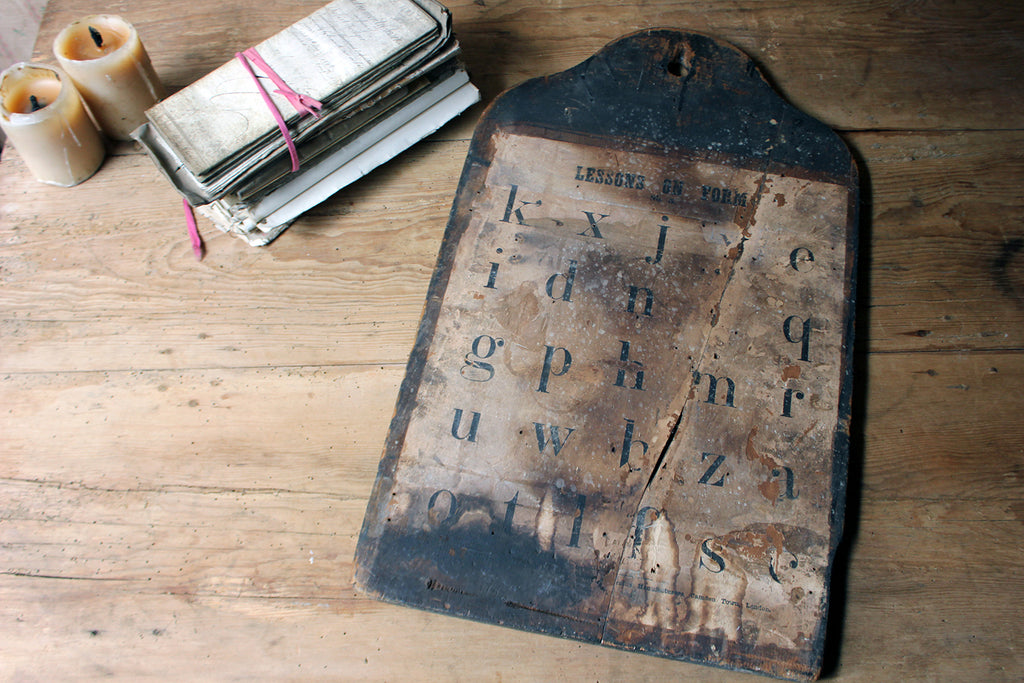 LESSONS ON FORM
k x j e
i d n q
g p h m r
u w b z a
o t l f s c
Camden Town, London.